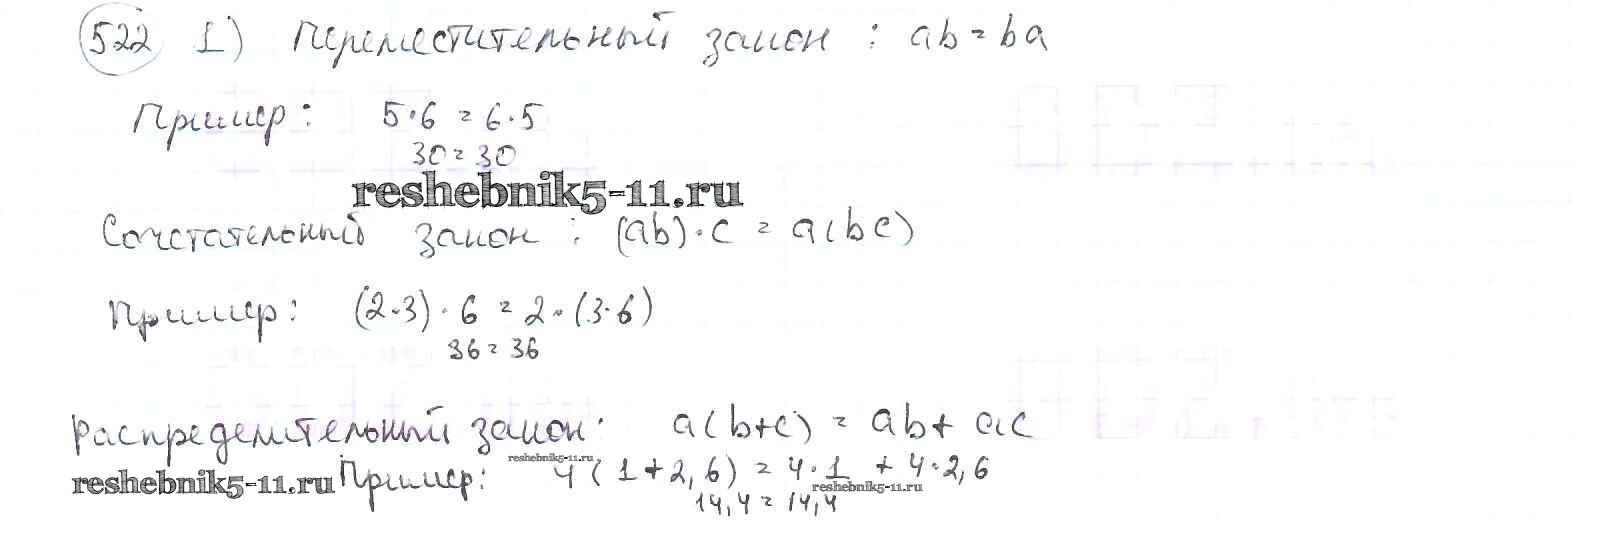 522 1) Переместительный закон : ab = ba
Пример: 5·6 = 6·5
30 = 30
reshebnik5-11.ru
Сочетательный закон : (ab)·c = a(bc)
Пример: (2·3)·6 = 2·(3·6)
36 = 36
Распределительный закон: a(b+c) = ab + ac
reshebnik5-11.ru
reshebnik5-11.ru Пример: 4(1+2,6) = 4·1 + 4·2,6
reshebnik5-11.ru
14,4 = 14,4